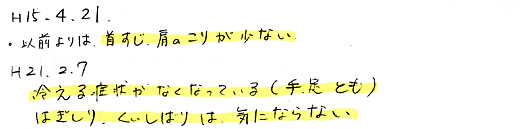 H15.4.21.
・以前よりは、首すじ、肩のこりが少ない
H21.2.7
冷える症状がなくなっている(手、足とも)
はぎしり、くいしばりは、気にならない